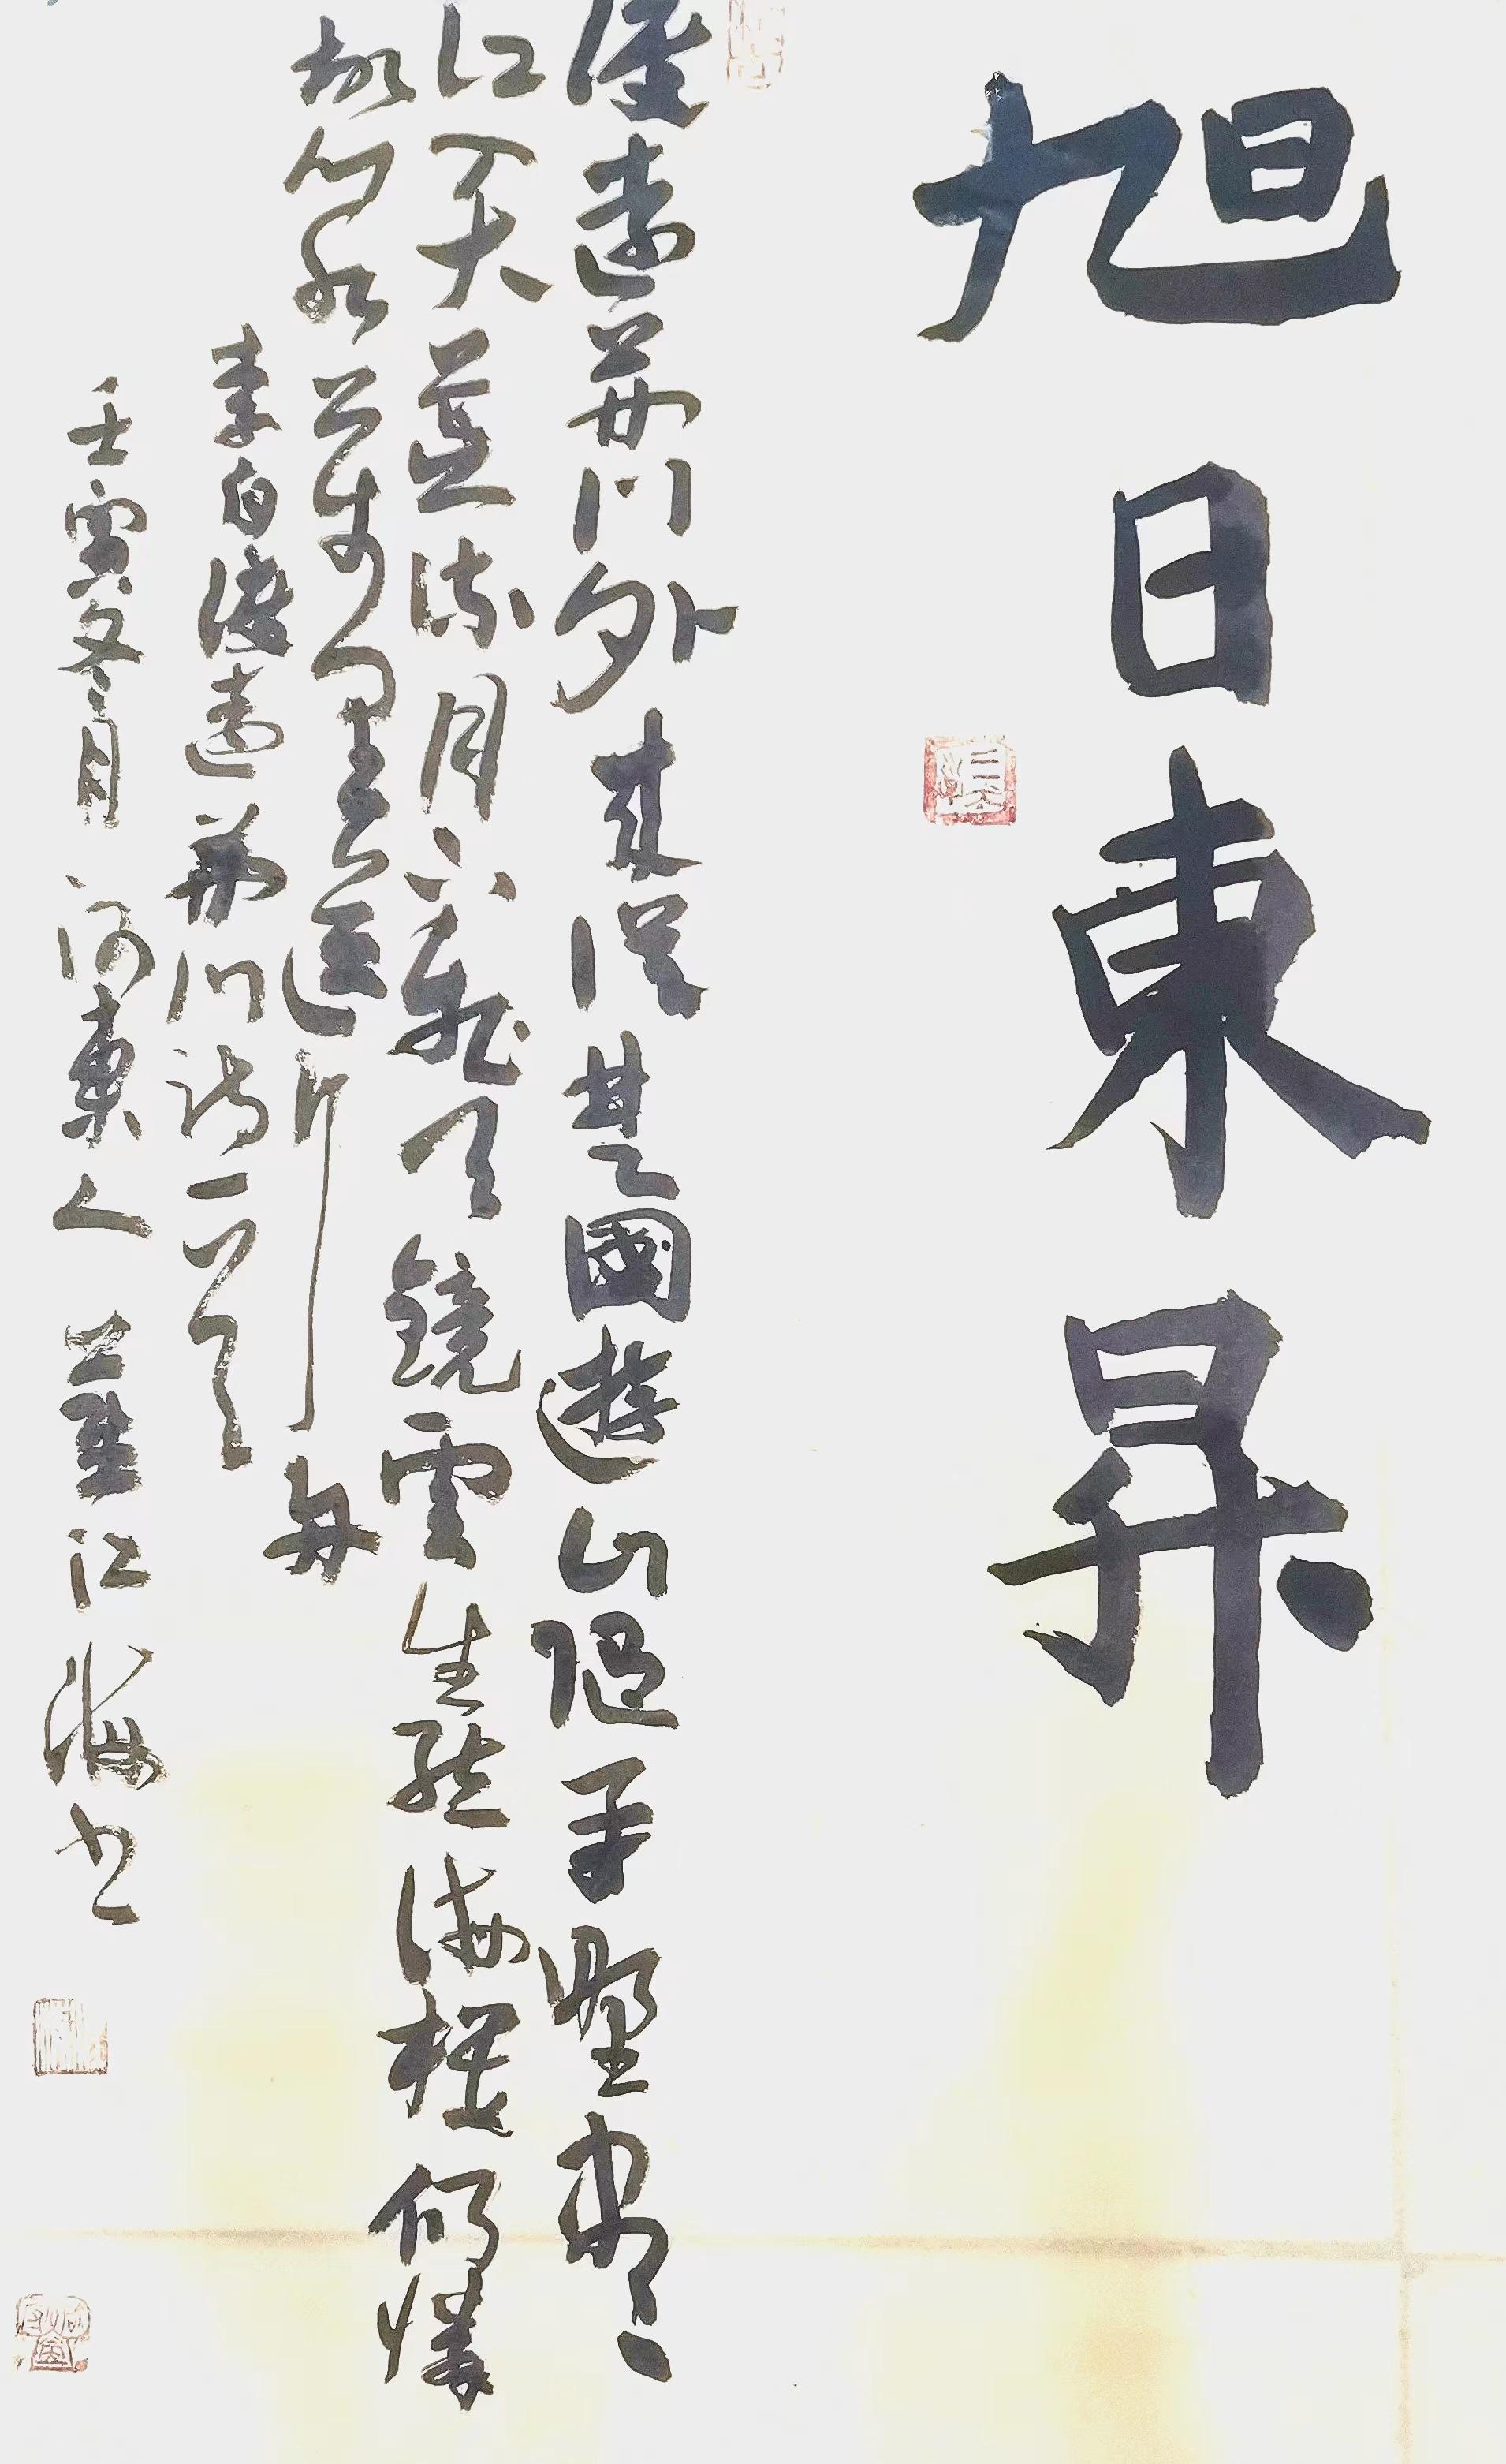 旭日東昇
渡遠荊門外來從楚國遊山隨平野盡
江入大荒流月下飛天鏡雲生結海樓仍憐
故鄉水萬里送行舟
李白渡遠荊門詩一首
壬寅冬月 河東人 江海書